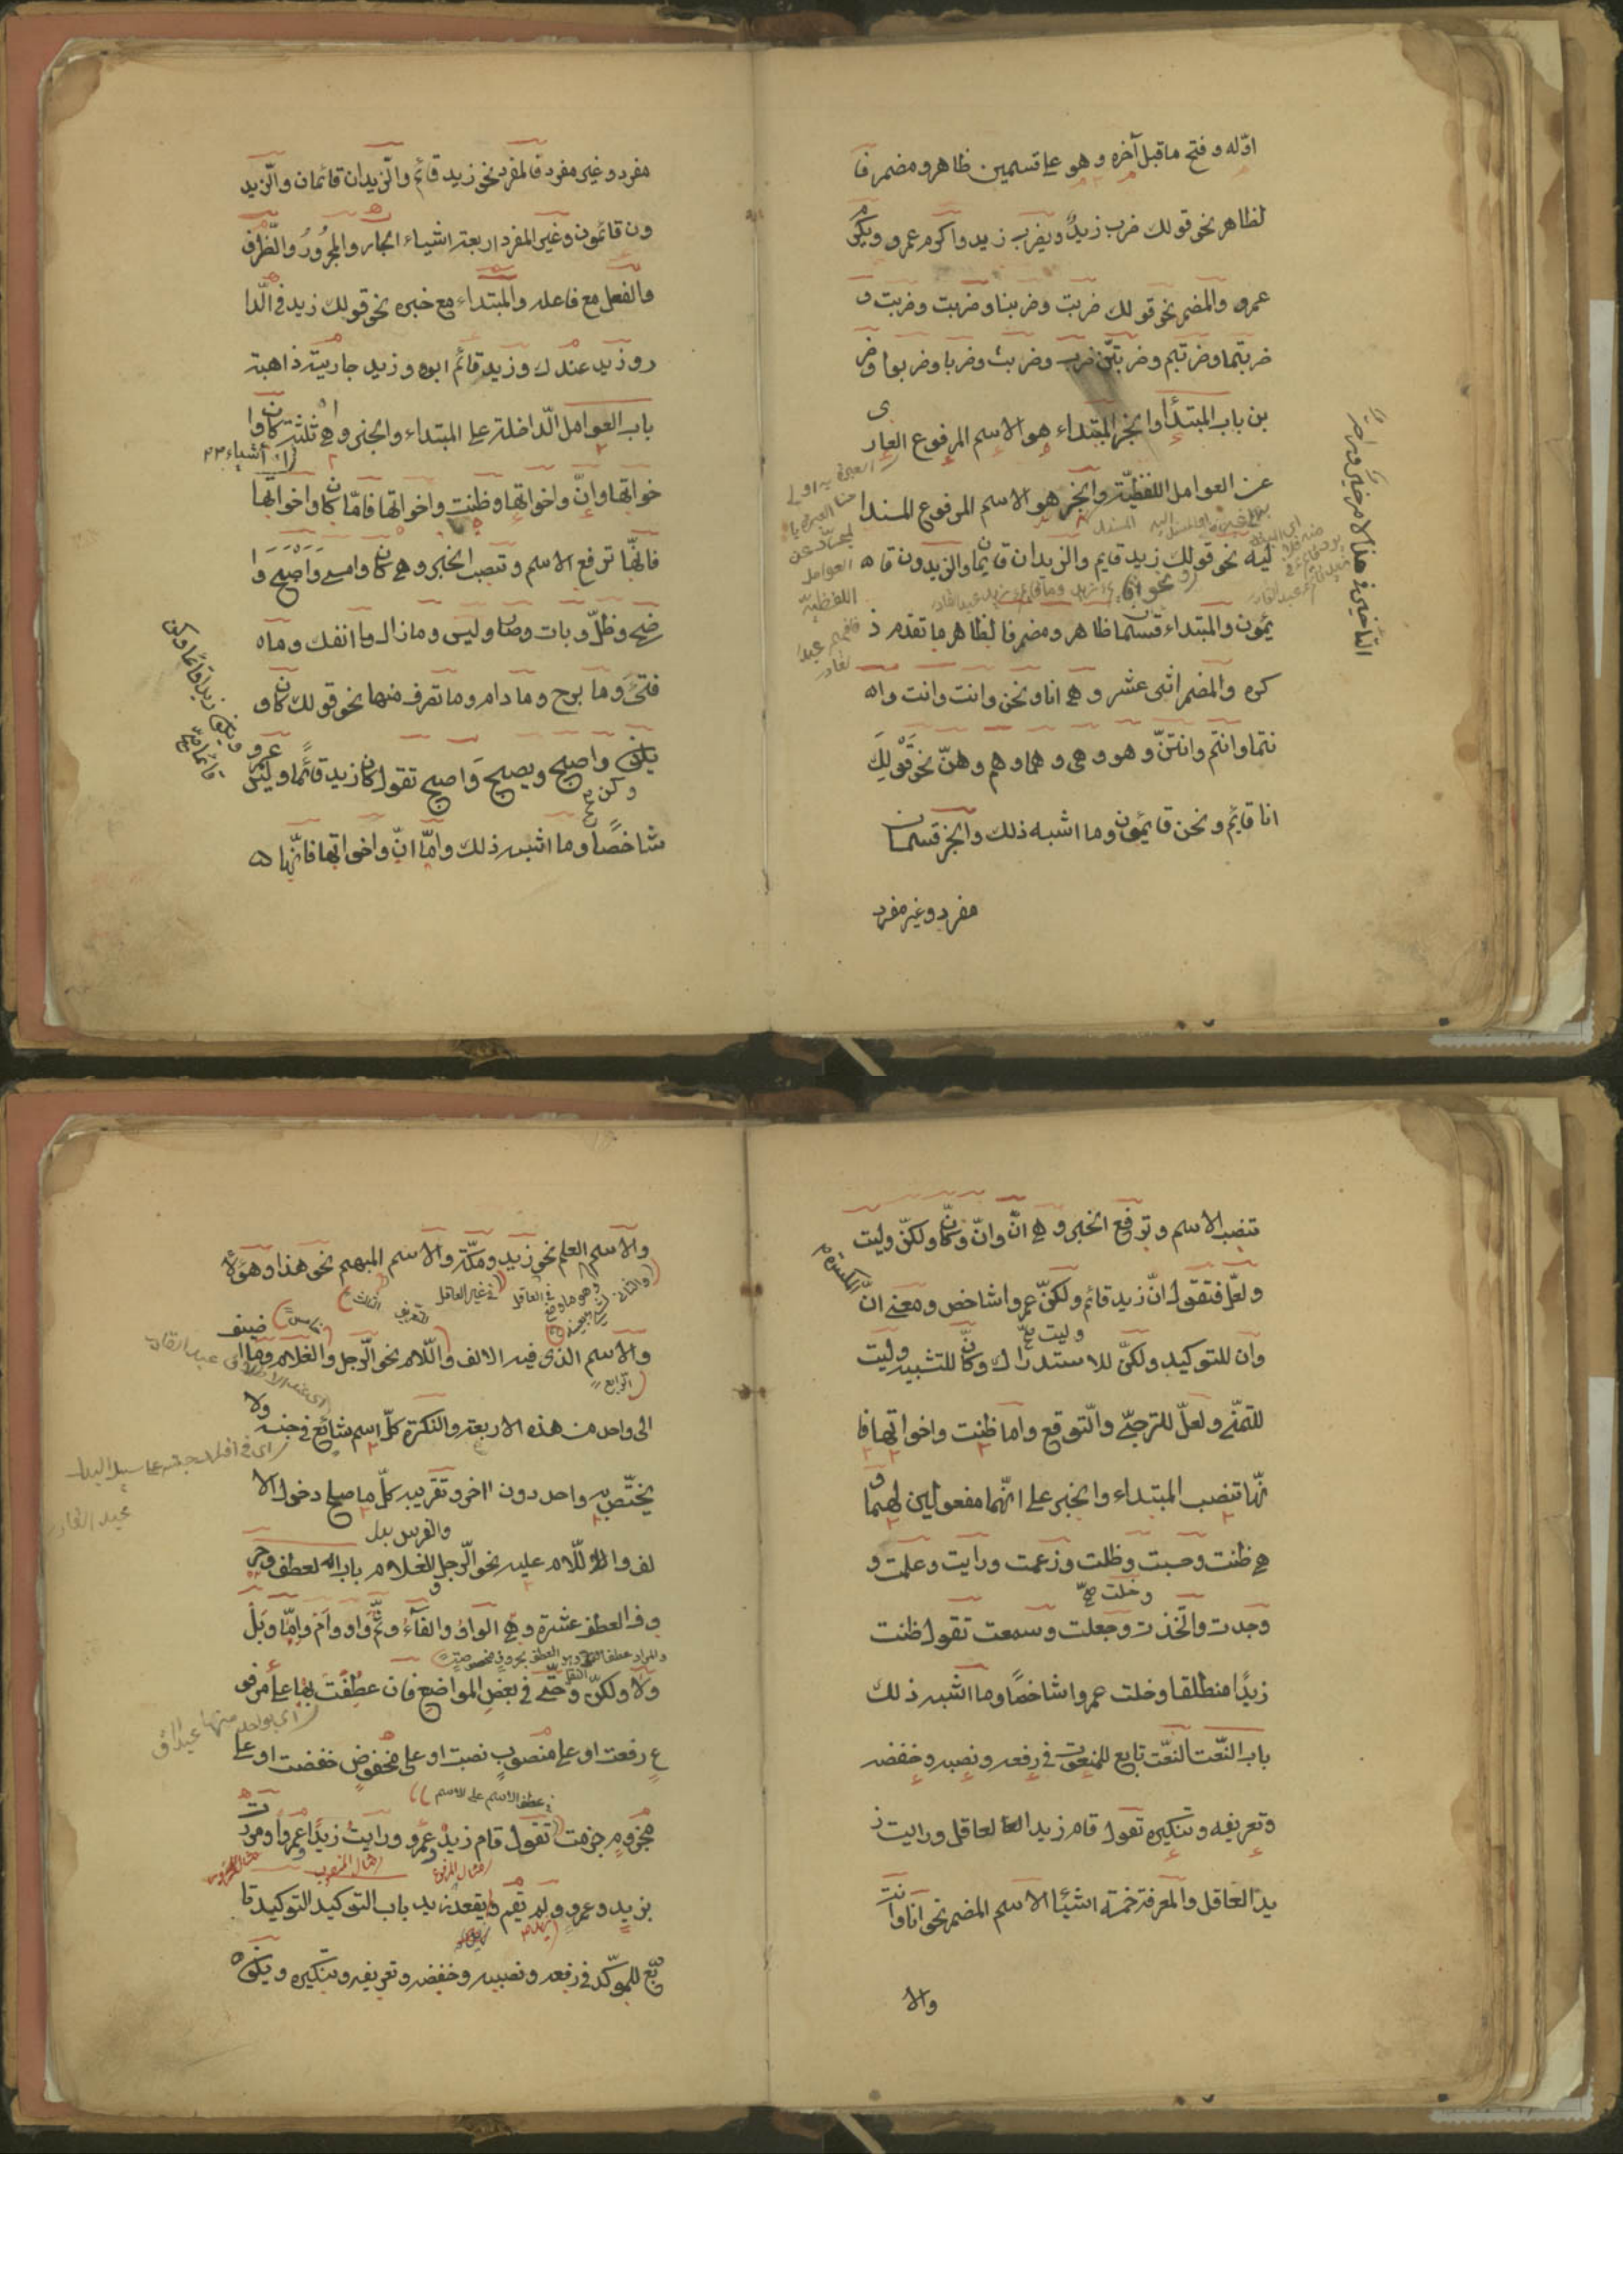 اوّله وفتح ماقبل آخره وهو على قسمين ظاهر ومضمر فا
لظاهر نحو قولك ضرب زيدٌ ويضرب زيد واكرم عمرو ويكرم
عمرو والمضمر نحو قولك ضربت وضربنا وضربت وضربت و
ضربتما وضربتم وضربتنّ ضرب وضربت وضربا وضربوا وضر
بن باب المبتدأ والخبر المبتداء هو الاسم المرفوع العارى
عن العوامل اللفظيّة والخبر هو الاسم المرفوع المسند ا
ليه نحو قولك زيد قايم والزيدان قايمان والزيدون قا
يمون والمبتداء قسمان ظاهر ومضمر فالظاهر ما تقدم ذ
كره والمضمر اثنى عشر وهى انا ونحن وانت وانت وا
نتما وانتم وانتنّ وهو وهى وهما وهم وهنّ نحو قولك
انا قايم ونحن قايمون وما اشبه ذلك والخبر قسمان
مفرد وغير مفرد
العوامل
اللفظيّة
مفرد وغير مفرد فالمفرد نحو زيد قائم والزّيدان قائمان والزّيد
ون قائمون وغير المفرد اربعة اشياء الجار والمجرورُ والظّرف
والفعل مع فاعله والمبتداء مع خبره نحو قولك زيد في الدّا
ر وزيد عندك وزيد قائم ابوه وزيد جاريته ذاهبة
باب العوامل الدّاخلة على المبتداء والخبر وهى ثلثة كان وا
اشياء
خواتها وانّ واخواتها وظننت واخواتها فامّا كان واخواتها
فانّها ترفع الاسم وتنصب الخبر وهى كان وامسى وَاَصْبَحَ وَا
ضحى وظلّ وبات وصار وليس ومازال وما انفك وما
فتئَ وما برح ومادام وما تصرف منها نحو قولك كان و
يكون وكن واصبح ويصبح وَاصبح تقول كان زيد قائمًا وليس عمرو
شاخصًا وما اشبه ذلك وامّا انّ واخواتها فانّها
تنصب الاسم وترفع الخبر وهى انّ وانّ وكانّ ولكنّ وليت
ولعلّ فتقول انّ زيد قائم ولكنّ عمروا شاخص ومعنى انّ
وليت
وان للتوكيد ولكنّ للاستدراك وكانّ للتشبيه وليت
للتمنّى ولعلّ للترجّى والتّوقع واما ظننت واخواتها فا
نّها تنصب المبتداء والخبر على انّهما مفعولين لهما و
هى ظننت وحسبت وظلت وزعمت ورايت وعلمت و
وخلت
وجدت واتّخذت وجعلت وسمعت تقول ظننت
زيدًا منطلقا وخلت عمروا شاخصًا وما اشبه ذلك
باب النّعت النّعت تابع للمنعوت فى رفعه ونصبه وخفضه
وتعريفه وتنكيره تقول قام زيد العاقل ورايت ز
يدًا العاقل والمعرفة خمسة اشيئا الاسم المضمر نحو انا وانت
والا
والاسم العلم نحو زيد ومكّة والاسم المبهم نحو هذا وهؤلاء
والاسم الذى فيه الالف واللّام نحو الرّجل والغلام وما اضيف
الرابع
الى واحد من هذه الاربعة والنكرة كلّ اسم شائع فى جنسه ولا
يختّص به واحد دون اخر وتقريبه كلّ ما صلح دخول الا
والفرس
لف واللّام عليه نحو الرّجل والغلام باب العطف وحر
وف العطف عشرة وهى الواوُ والفآءُ وثمّ وَاو وَاَمْ وَاِمّا وَبَلْ
ولا ولكنّ وحتّى فى بعض المواضع فان عطفت بها على مرفو
ع رفعت او على منصوب نصبت او على مخفوض خفضت او على
عطف الاسم على الاسم
مجزوم جزمت تقول قام زيدٌ وعمرو ورايت زيدًا وعمروا ومررت
مثال المرفوع
مثال المنصوب
بزيدٍ وعمروٍ ولم يقم ويقعد زيد باب التوكيد التوكيد تا
بع للموكّد فى رفعه ونصبه وخفضه وتعريفه وتنكيره ويكون